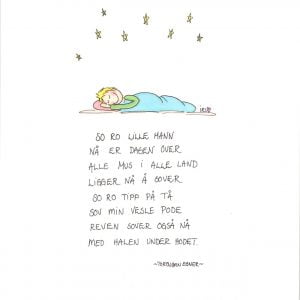 SO RO LILLE MANN
NÅ ER DAGEN OVER
ALLE MUS I ALLE LAND
LIGGER NÅ Å SOVER
SO RO TIPP PÅ TÅ
SOV MIN VESLE PODE
REVEN SOVER OGSÅ NÅ
MED HALEN UNDER HODET
~TORBJØRN EGNER~